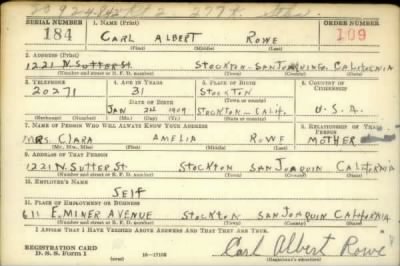 SERIAL NUMBER 1. NAME (Print) ORDER NUMBER
184 CARL ALBERT ROWE 109
(First) (Middle) (Last)
2. ADDRESS (Print)
1221 N. SUTTER ST. STOCKTON - SAN JOAQUIN CALIFORNIA
(Number and street or R. F. D. number) (Town) (County) (State)
3. TELEPHONE 4. AGE IN YEARS 5. PLACE OF BIRTH 6. COUNTRY OF CITIZENSHIP
20271 31 STOCKTON
DATE OF BIRTH (Town or county)
JAN 2nd 1909 STOCKTON - CALIF. U.S.A.
(Mo.) (Day) (Yr.) (State or country)
7. NAME OF PERSON WHO WILL ALWAYS KNOW YOUR ADDRESS 8. RELATIONSHIP OF THAT PERSON
MRS CLARA AMELIA ROWE MOTHER
(Mr., Mrs., Miss) (First) (Middle) (Last)
9. ADDRESS OF THAT PERSON
1221 N. SUTTER ST. STOCKTON SAN JOAQUIN CALIFORNIA
(Number and street or R. F. D. number) (Town) (County) (State)
10. EMPLOYER'S NAME
SELF
11. PLACE OF EMPLOYMENT OR BUSINESS
611 E. MINER AVENUE STOCKTON SAN JOAQUIN CALIFORNIA
(Number and street or R. F. D. number) (Town) (County) (State)
I AFFIRM THAT I HAVE VERIFIED ABOVE ANSWERS AND THAT THEY ARE TRUE.
REGISTRATION CARD
D. S. S. Form 1 (over) 16-17105 Carl Albert Rowe
(Registrant's signature)